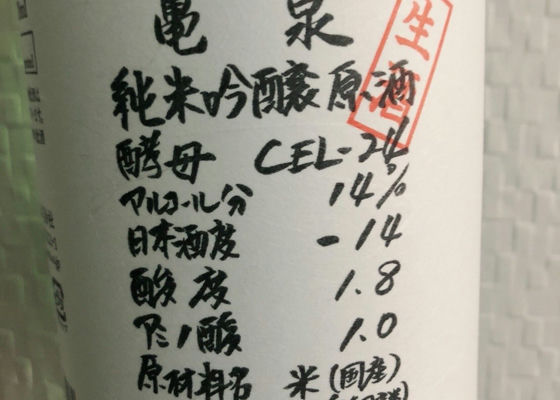 亀泉
生酒
純米吟醸原酒
酵母 CEL-24
アルコール分 14%
日本酒度 -14
酸度 1.8
アミノ酸 1.0
原材料名 米(国産)